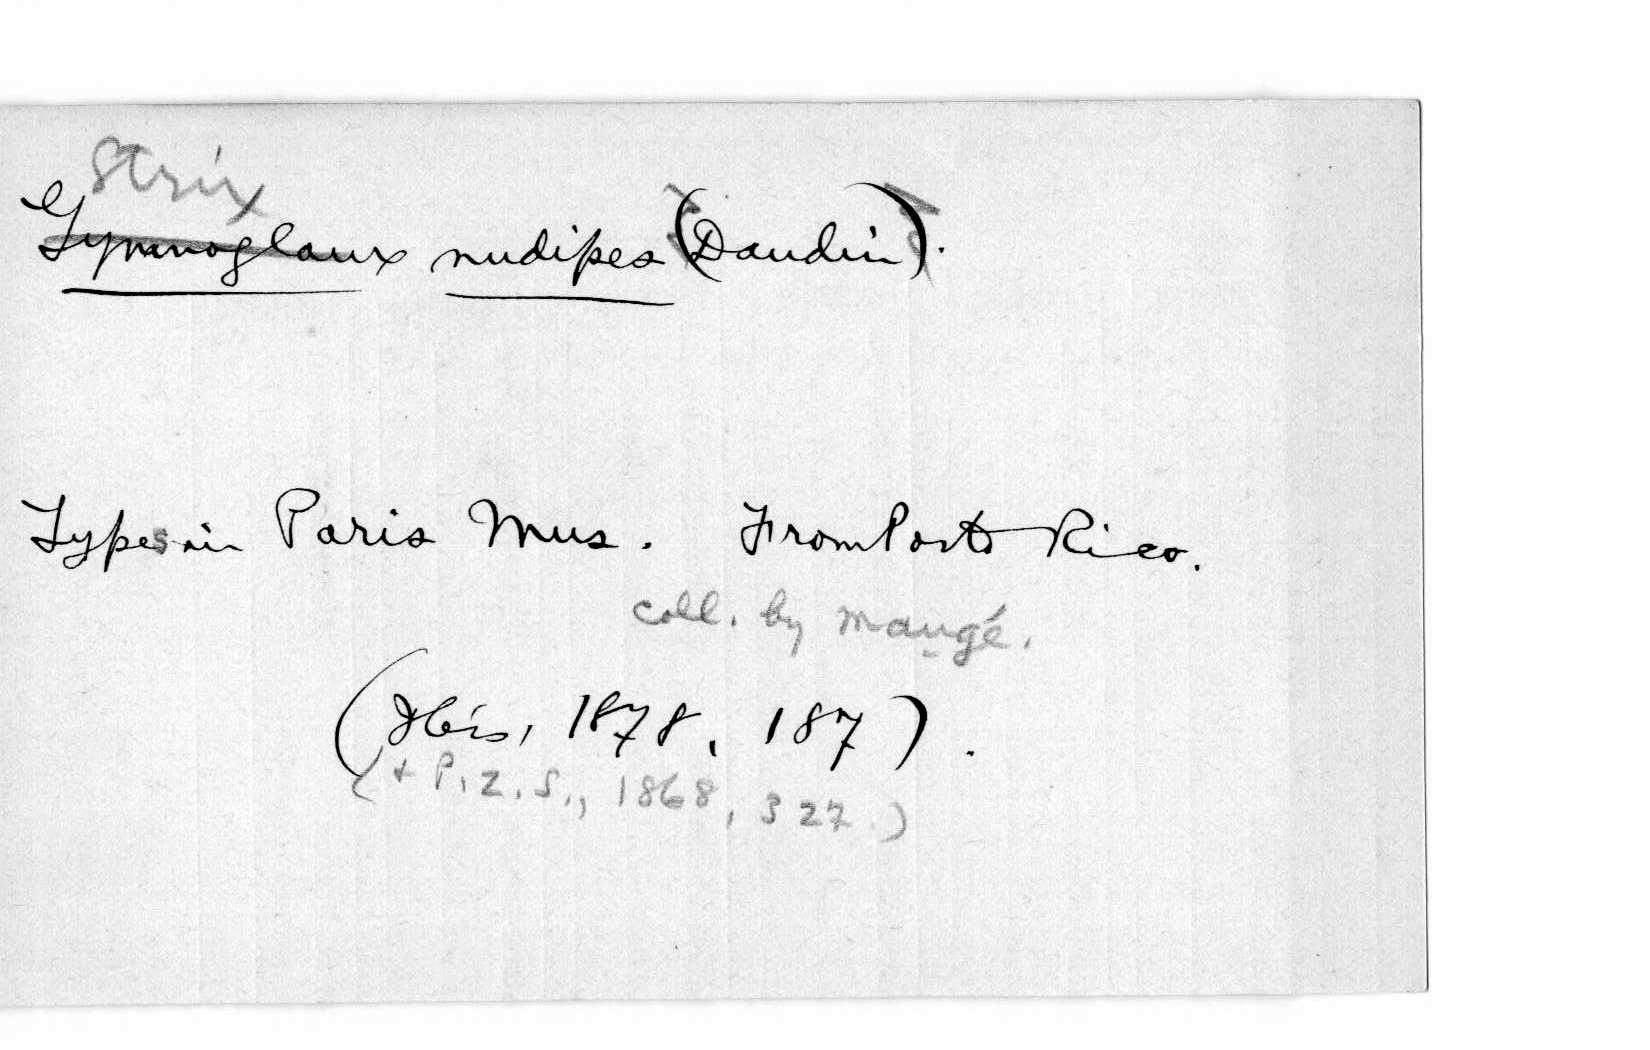 Strix
Gymnoglaux nudipes (Daudin).
Types in Paris Mus. From Porto Rico.
coll. by Maugé.
(Ibis, 1878, 187).
(+ P.Z.S., 1868, 327.)